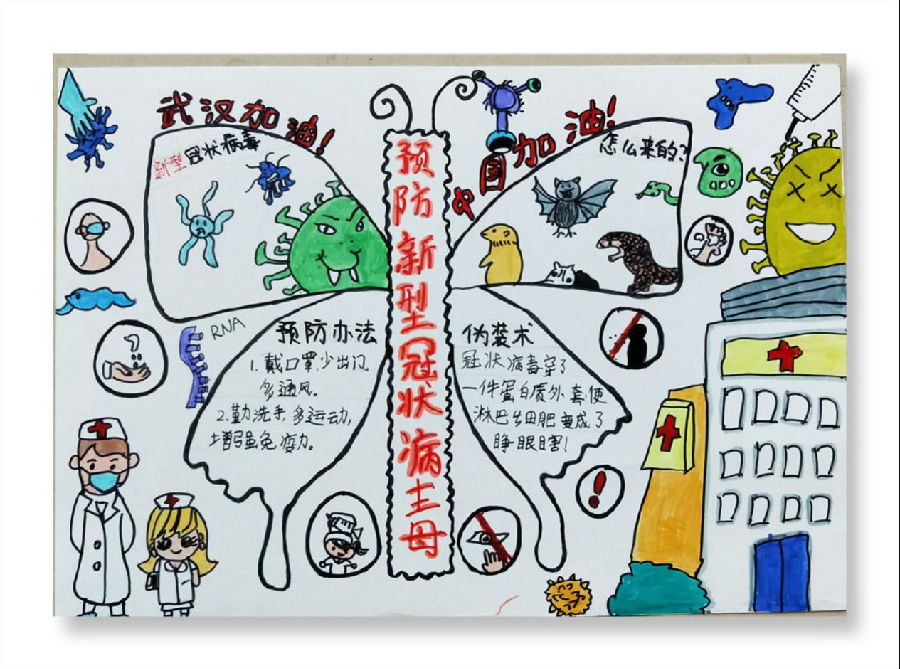 武汉加油!
中国加油!
预防新型冠状病毒
新型冠状病毒
怎么来的?
RNA
预防办法
1.戴口罩,少出门,
多通风。
2.勤洗手,多运动,
增强免疫力。
伪装术
冠状病毒穿了
一件蛋白质外套,使
淋巴细胞变成了
睁眼瞎!